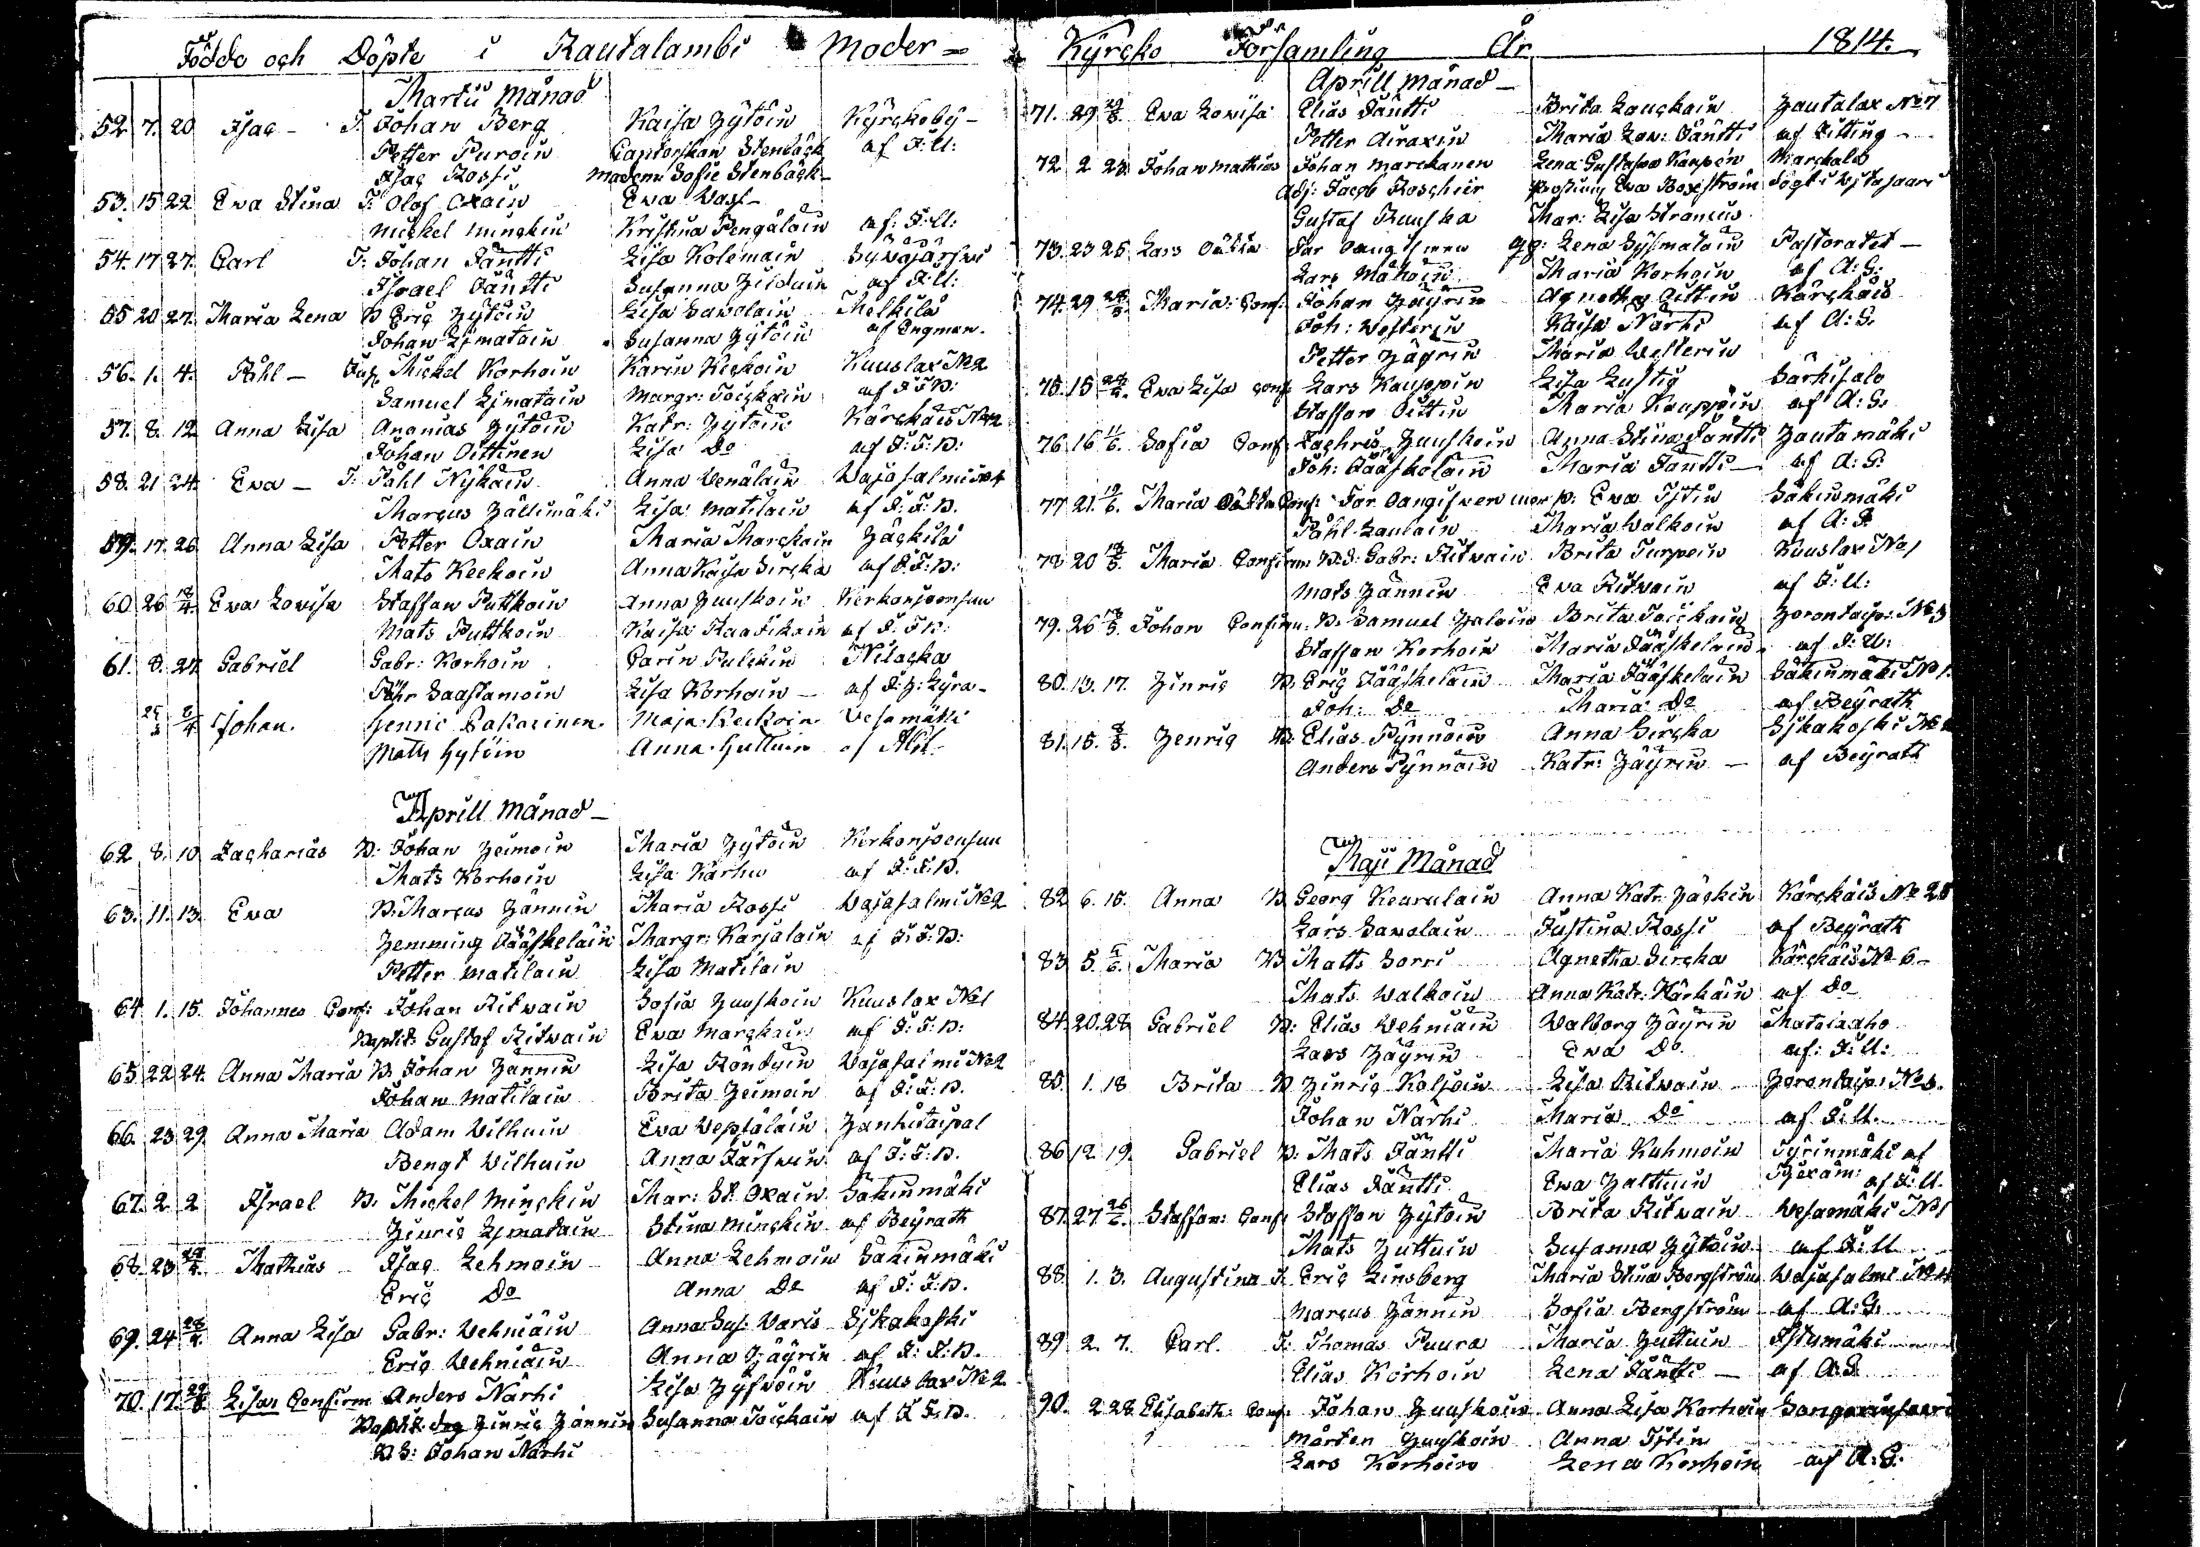 Födde och Döpte i Rautalambi Moder=
Martii Månad
52. 7. 20 Isac - T. Johan Berg Kaisa Hytöin Kyrckoby -
Petter Puroin Cantorskan Stenbäck af J: U:
Isac Rossi Madem Sofie Stenbäck
53. 15 22 Eva Stina T. Olof Oxain Eva Wass -
Mickel Minckin Kristina Pengalain af: J: U:
54. 17 27. Carl T. Johan Jäntti Lisa Kolemain Sywäjärfwi
Israel Jäntti Susanna Hilduin af J: U:
55 20 27. Maria Lena B Eric Hytöin Lisa Sawolain Melkilä
Johan Limatain Susanna Hytöin af Engman.
56. 1. 4. Påhl - Mickel Korhoin Karin Keckoin Kuuslax No 2
Samuel Limatain Margr: Toickain af J: T: B:
57. 8. 12 Anna Lisa Ananias Hytöin Katr: Hytöin Kärckäis No 12
Johan Oittinen Lisa Do af J: T: B:
58. 21 24 Eva - T: Påhl Nykäin Anna Wenäläin Wajasalmi No 4
Marcus Hällimäki Lisa Matilain af J: T: B.
59. 17. 26 Anna Lisa Petter Oxain Maria Marckain Häckilä
Mats Keckoin Anna Kaisa Sircka af J: T: B:
60. 26 12/4. Eva Lovisa Staffan Puttkoin Anna Huuskoin Kerkonjoensuu
Mats Puttkoin Kaisa Raatikain af J: T: B:
61. 8. 24 Gabriel Gabr: Korhoin Carin Pulckin Nilacka
Pehr Saastamoin Lisa Korhoin - af J: H: Lyra -
25/3 8/4 Johan. Henric Pakarinen. Maja Keckoin Vesamäki
Matts Hytöin Anna Huttuin af
Aprill Månad -
62 8. 10 Zacharias B: Johan Heimoin Maria Hytöin Kerkonjoensuu
Mats Korhoin Lisa Karhu af J: T: B.
63. 11. 13. Eva B: Marcus Hännin Maria Rossi Wajasalmi No 2
Hemming Jääskeläin Margr: Karjalain af J: T: B:
Petter Matilain Lisa Matilain
64 1. 15. Johannes Conf: Johan Ritwain Sofia Huuskoin Kuuslax No 1
Baptis: Gustaf Ritwain Eva Marckain af J: T: B:
65 22 24. Anna Maria B Johan Hännin Lisa Röndyin Wajasalmi No 2
Johan Matilain Brita Heimoin af J: T: B.
66. 23 29. Anna Maria Adam Wilhuin Eva Wepsäläin Hankitaipal
Bengt Wilhuin Anna Järfwin af J: T: B.
67. 2 2 Israel B. Mickel Minckin Mar: St: Oxain Säkinmäki
Hinric Limatain Stina Minckin af Beyrath
68. 23 24/4. Mathias Isac Lehmoin Anna Lehmoin Säkinmäki
Eric Do Anna Do af J: T: B.
69. 24 28/4. Anna Lisa Gabr: Wehniäin Anna Sus: Waris Sikakoski
Eric Wehniäin Anna Häyrin af J: T: B.
70. 17. Lisa Confirm Anders Närhi Lisa Hyfwöin Kuuslax No 2
Baptis. Hinric Hännin Susanna Toickain af J: T: B.
B S: Johan Närhi
Kyrcko Församling År 1814.
Aprill Månad -
71. 29 Eva Lovisa Elias Jäntti Brita Lauckain Hautalax No 7
Petter Airaxin Maria Lov: Jäntti af Litting -
72. 2 23 Johan Mathias Johan Marckanen Lena Gustafva Kaupein Marckala
Adj: Jacob Roschier Eva Boxström
Gustaf Ruuska Mar: Lisa Stranius
73. 23 26 Lars Lena Sysmäläin Pastoratet -
Lars Mähöin Maria Korhoin af A: G:
74. 29 Maria: Conf: Johan Häyrin Agnetha Oittin Kärckäis
Joh: Westerin Kaisa Närhi af A: G.
Petter Häyrin Maria Westerin
75. 15 Eva Lisa Conf Lars Kauppin Lisa Lustig Särkisalo
Staffan Oittin Maria Kauppin af A: G.
76. 16 11/6. Sofia Conf Zachris Huuskoin Anna Stina Jäntti Hautamäki
Joh: Jääskeläin Maria Jäntti - af A: G:
77 21. 12/6. Maria Conf: Eva Istin Säkinmäki
Påhl Laulain Maria Walkoin af A: G
78 20 Maria Confirm B. S: Gabr: Ritwain Brita Turpein Kuuslax No 1
Mats Hännin Eva Ritwain af J: U:
79. 26 Johan Confirm. B. Samuel Haloin Brita Toickain Horontaip: No 3
Staffan Korhoin Maria Jääskeläin af J: U:
80. 13. 17. Hinric B. Eric Jääskeläin Maria Jääskeläin Säkinmäki No 1.
Joh: Do Maria Do af Beyrath
81. 15. 8/5. Henric B: Elias Pynnöin Anna Sircka Sikakoski No
Anders Pynnöin Katr: Häyrin - af Beyrath
Maji Månad
82 6. 15. Anna B Georg Keurulain Anna Katr: Häckin Kärckäis No 28
Lars Sawolain Justina Rossi af Beyrath
83 5. Maria B Matts Sorri Agnetha Sircka Kärckäis No 6 -
Mats Walkoin Anna Katr: Kärkäin af Do
84. 20. 28 Gabriel B: Elias Wehniäin Walborg Häyrin Matoixaho
Lars Häyrin Eva Do. af: J: U:
85. 1. 18 Brita B Hinric Koljoin Lisa Ritwain Horontaip: No 3.
Johan Närhi Maria Do af J: U.
86 12 19. Gabriel B: Mats Jäntti Maria Kuhmoin Tyrinmäki af
Elias Jäntti Eva Huttuin Pjexäm: af J: U.
87. 27 26/6. Staffan: Conf: Staffan Hytöin Brita Ritwain Wesamäki No 1
Mats Huttuin Susanna Hytöin af J: U
88. 1. 3. Augustina T. Eric Linsberg Maria Stina Bergström Wajasalmi No 4
Marcus Hännin Sofia Bergström af A: G.
89 2. 7. Carl. T: Thomas Puura Maria Huttuin Istumäki
Elias Korhoin Lena Jäntti - af A: G
90. 2 28 Elisabeth: Conf: Johan Huuskoin Anna Lisa Korhoin Hongorinsaari
Mårten Huuskoin Anna Istin
Lars Korhoin Lena Korhoin af A: G.